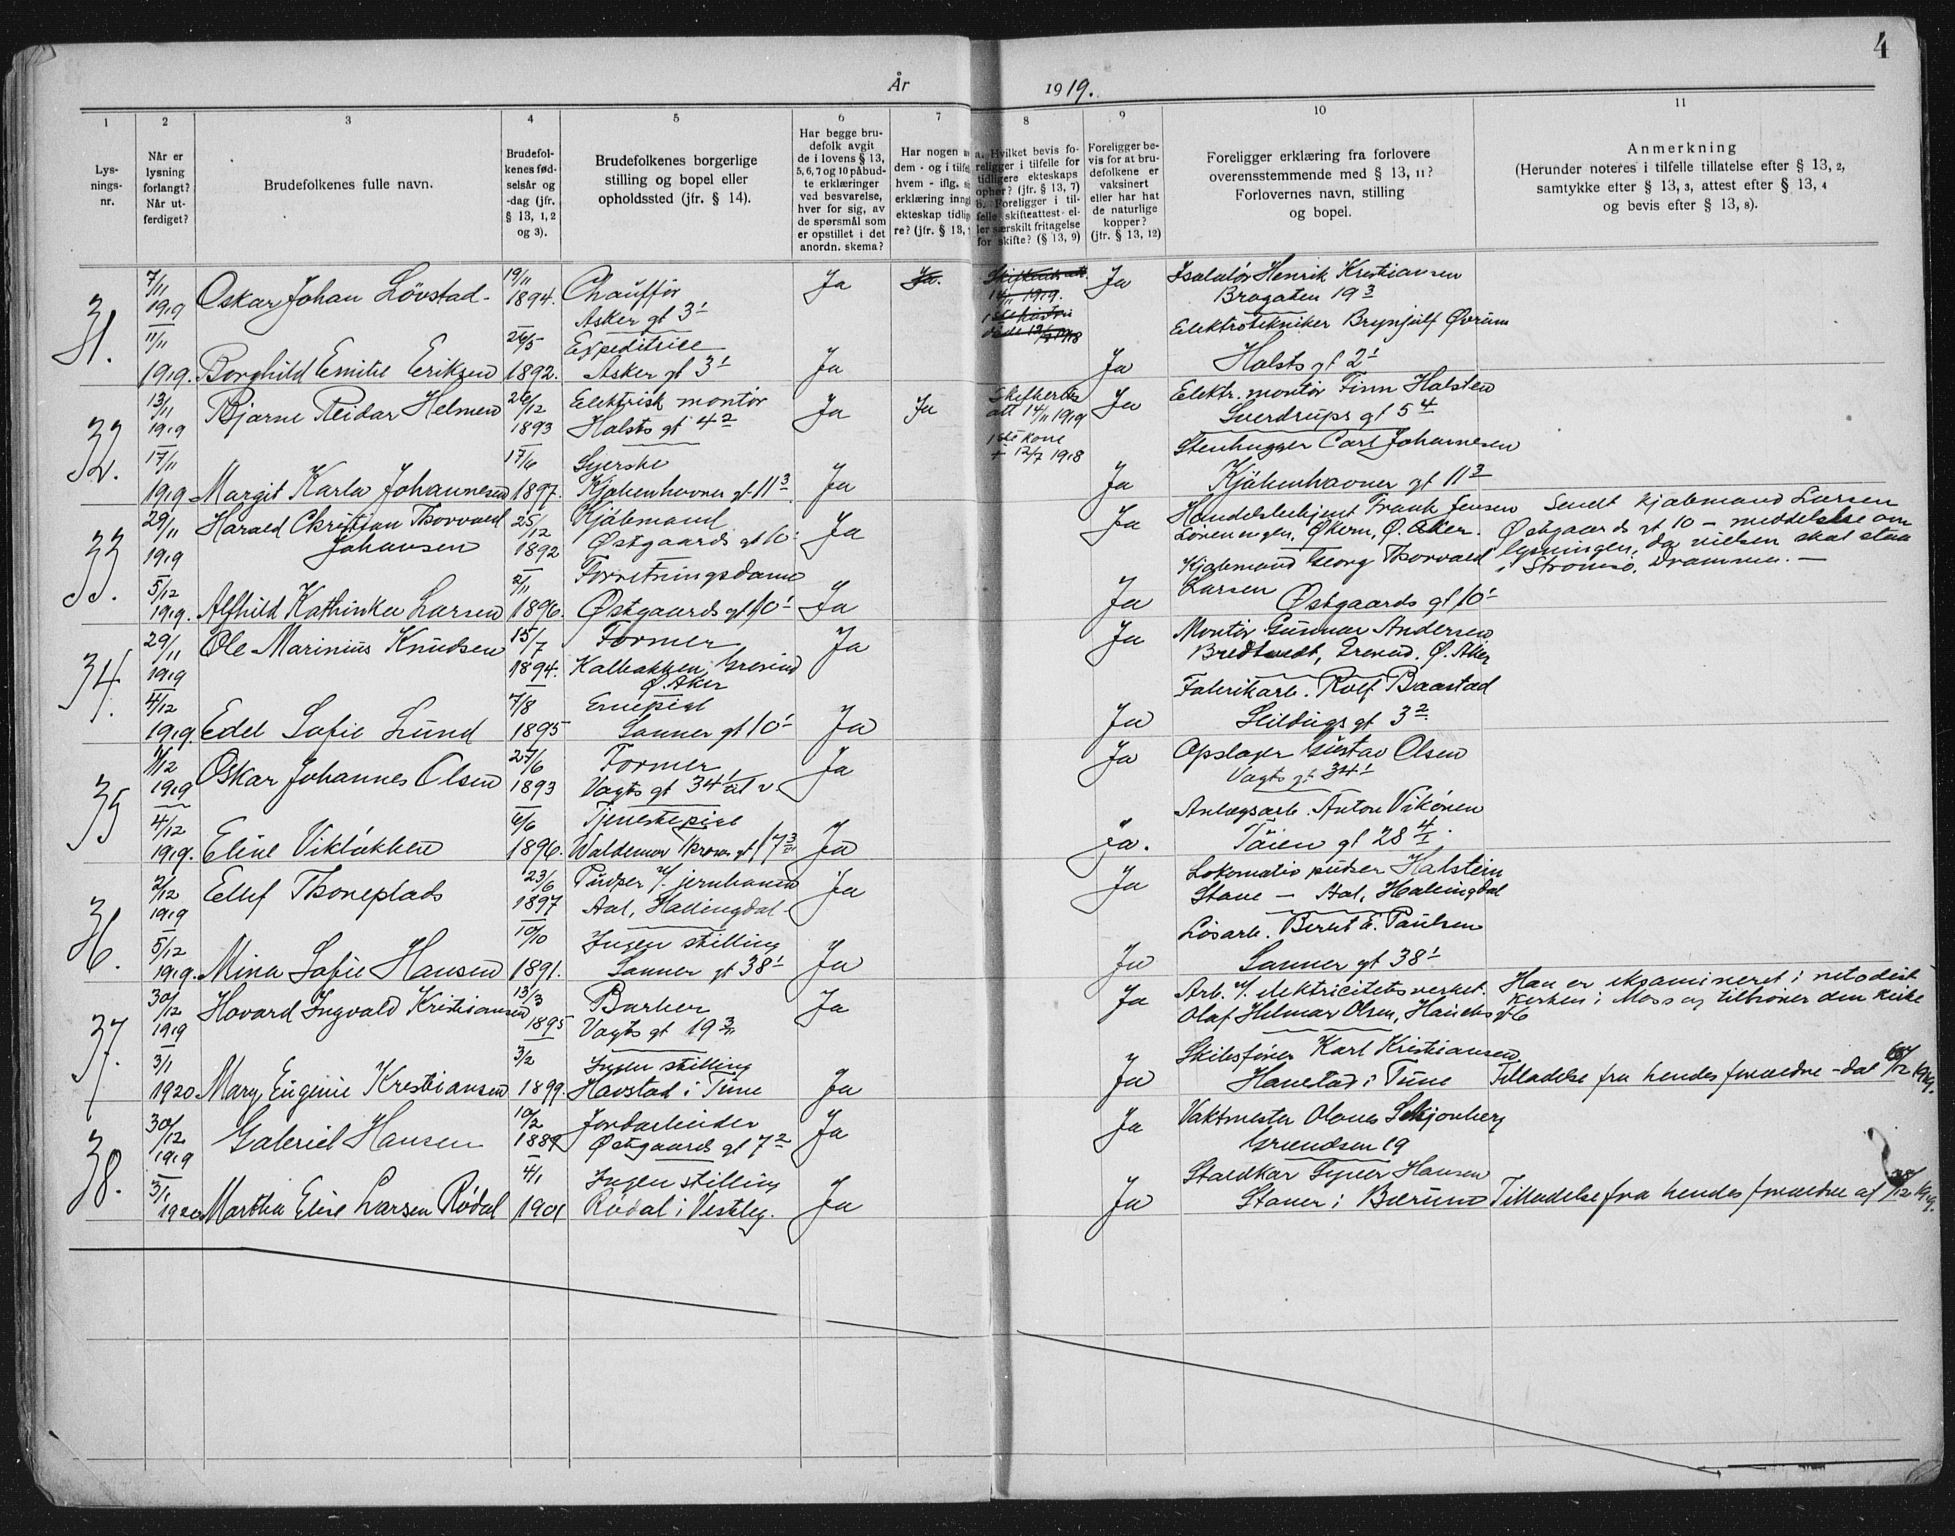 4
År 1919.
1 2 3 4 5 6 7 8 9 10 11
Lysnings-nr.
Når er lysning forlangt? Når utferdiget?
Brudefolkenes fulle navn.
Brudefolkenes fødselsår og -dag (jfr. § 13, 1, 2 og 3).
Brudefolkenes borgerlige stilling og bopel eller opholdssted (jfr. § 14).
Har begge brudefolk avgit de i lovens § 13, 5, 6, 7 og 10 påbudte erklæringer ved besvarelse, hver for sig, av de spørsmål som er opstillet i det anordn. skema?
Har nogen dem - og i tilf hvem - iflg. erklæring inng ekteskap tidlig re? (jfr. § 13,
a. Hvilket bevis foreligger i tilfelle for tidligere ekteskaps ophør? (jfr. § 13, 7) b. Foreligger i tilfelle skifteattest eller særskilt fritagelse for skifte? (§ 13, 9)
Foreligger bevis for at brudefolkene er vaksinert eller har hat de naturlige kopper? (jfr. § 13, 12)
Foreligger erklæring fra forlovere overensstemmende med § 13, 11? Forlovernes navn, stilling og bopel.
Anmerkning
(Herunder noteres i tilfelle tillatelse efter § 13, 2, samtykke efter § 13, 3, attest efter § 13, 4 og bevis efter § 13, 8).
31.
7/11 1919
11/11 1919.
Oskar Johan Lövstad
19/11 1894.
Chaufför
Asker gt 3¹
Ja
Ja.
Ja
Henrik Kristiansen
19³
Borghild Emilie Eriksen
26/5 1892.
Expeditrice
Asker gt 3¹
Ja
Ja
Elektrotekniker Brynjulf Øvrum
Holsts gt 2¹
32.
13/11 1919
17/11 1919
Bjarne Reidar Helmen
26/12 1893
Elektrisk montör
Holsts gt 4²
Ja
Ja
att 14/11 1919
1ste kone
+ 12/7 1918
Ja
Elektr. montör Finn Halsten
Sverdrups gt 5⁴
Margit Karla Johannesen
17/6 1897.
Syerske
Kjøbenhavner gt 11³
Ja
Ja
Stenhugger Carl Johannesen
Kjøbenhavner gt 11³
33.
29/11 1919
5/12 1919.
Harald Christian Thorvald
Johansen
25/12 1892
Kjøbmand
Østgaards gt 10
Ja
Ja
Handelsbetjent Frank Jensen
Økern, Ø. Aker.
Sendt kjøbmand Larsen
Østgaards gt 10 – meddelelse om
lysningen, da vielsen skal staa
i Strømsø, Drammen. –
Alfhild Kathinka Larsen
2/11 1896.
Forretningsdame
Østgaards gt 10¹
Ja
Ja
Kjøbmand Georg Thorvald
Larsen
Østgaards gt 10¹
34.
29/11 1919
4/12 1919.
Ole Marinius Knudsen
15/7 1894.
Former
Kalbakken, Grorud
Ø. Aker
Ja
Ja
Montör Gunnar Andersen
Bredtvedt, Grorud. Ø. Aker
Edel Sofie Lund
7/8 1895
Sanner gt 10¹
Ja
Ja
Fabrikarb. Rolf Baastad
gt 3²
35
1/12 1919
4/12 1919.
Oskar Johannes Olsen
27/6 1893
Former
Vogts gt 34¹
Ja
Ja
Gustav Olsen
Vogts gt 34¹
Eline Vikløkken
6/6 1896.
Tjenestepike
Waldemar Thranes gt 17³
Ja
Ja.
Anlægsarb. Anton Vikören
Töien gt 28
36.
2/12 1919
5/12 1919.
Ellef Thoneplads
23/6 1897
Pudser v/ jernbanen
Aal, Hallingdal
Ja
Ja
Lokomotivpudser Halstein
Stave – Aal, Hallingdal
Mina Sofie Hansen
10/10 1891.
Ingen stilling
Sanner gt 38¹
Ja
Ja
Løsarb. Bernt E. Paulsen
Sanner gt 38¹
37.
30/12 1919
3/1 1920
Hovard Ingvald Kristiansen
13/3 1895
Barber
Vogts gt 19³
Ja
Ja
Arb. v/ elektricitetsverket
Olaf Hilmar Olsen, Hauchs gt 6
Han er eksamineret i metodist
kirken i Moss og tilhører den kirke
Mary Eugenie Kristiansen
3/2 1899.
Ingen stilling
Havstad i Tune
Ja
Ja
Skibsfører Karl Kristiansen
Hanestad i Tune
Tilladelse fra hendes forældre – dat /12 1919.
38.
30/12 1919
3/1 1920
Gabriel Hansen
10/2 1889
Jordarbeider
Østgaards gt 7²
Ja
Ja
Vaktmester Olaves Skjønberg
Grændsen 19
Martha Elise Larsen Rödal
4/1 1901
Ingen stilling
Rödal i Vestby.
Ja
Ja
Staldkar Syver Hansen
Staver i Bærum
Tilladelse fra hendes forældre af /12 1919.